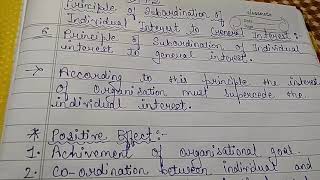 Principle of Subordination of
Individual Interest to General Interest:
6. Principle of Subordination of Individual
interest to general interest.
→ According to this principle the interest
of Organisation must supercede the
individual interest.
* Positive Effect:-
1. Achivement of organisational goal.
2. Co-ordination between individual and